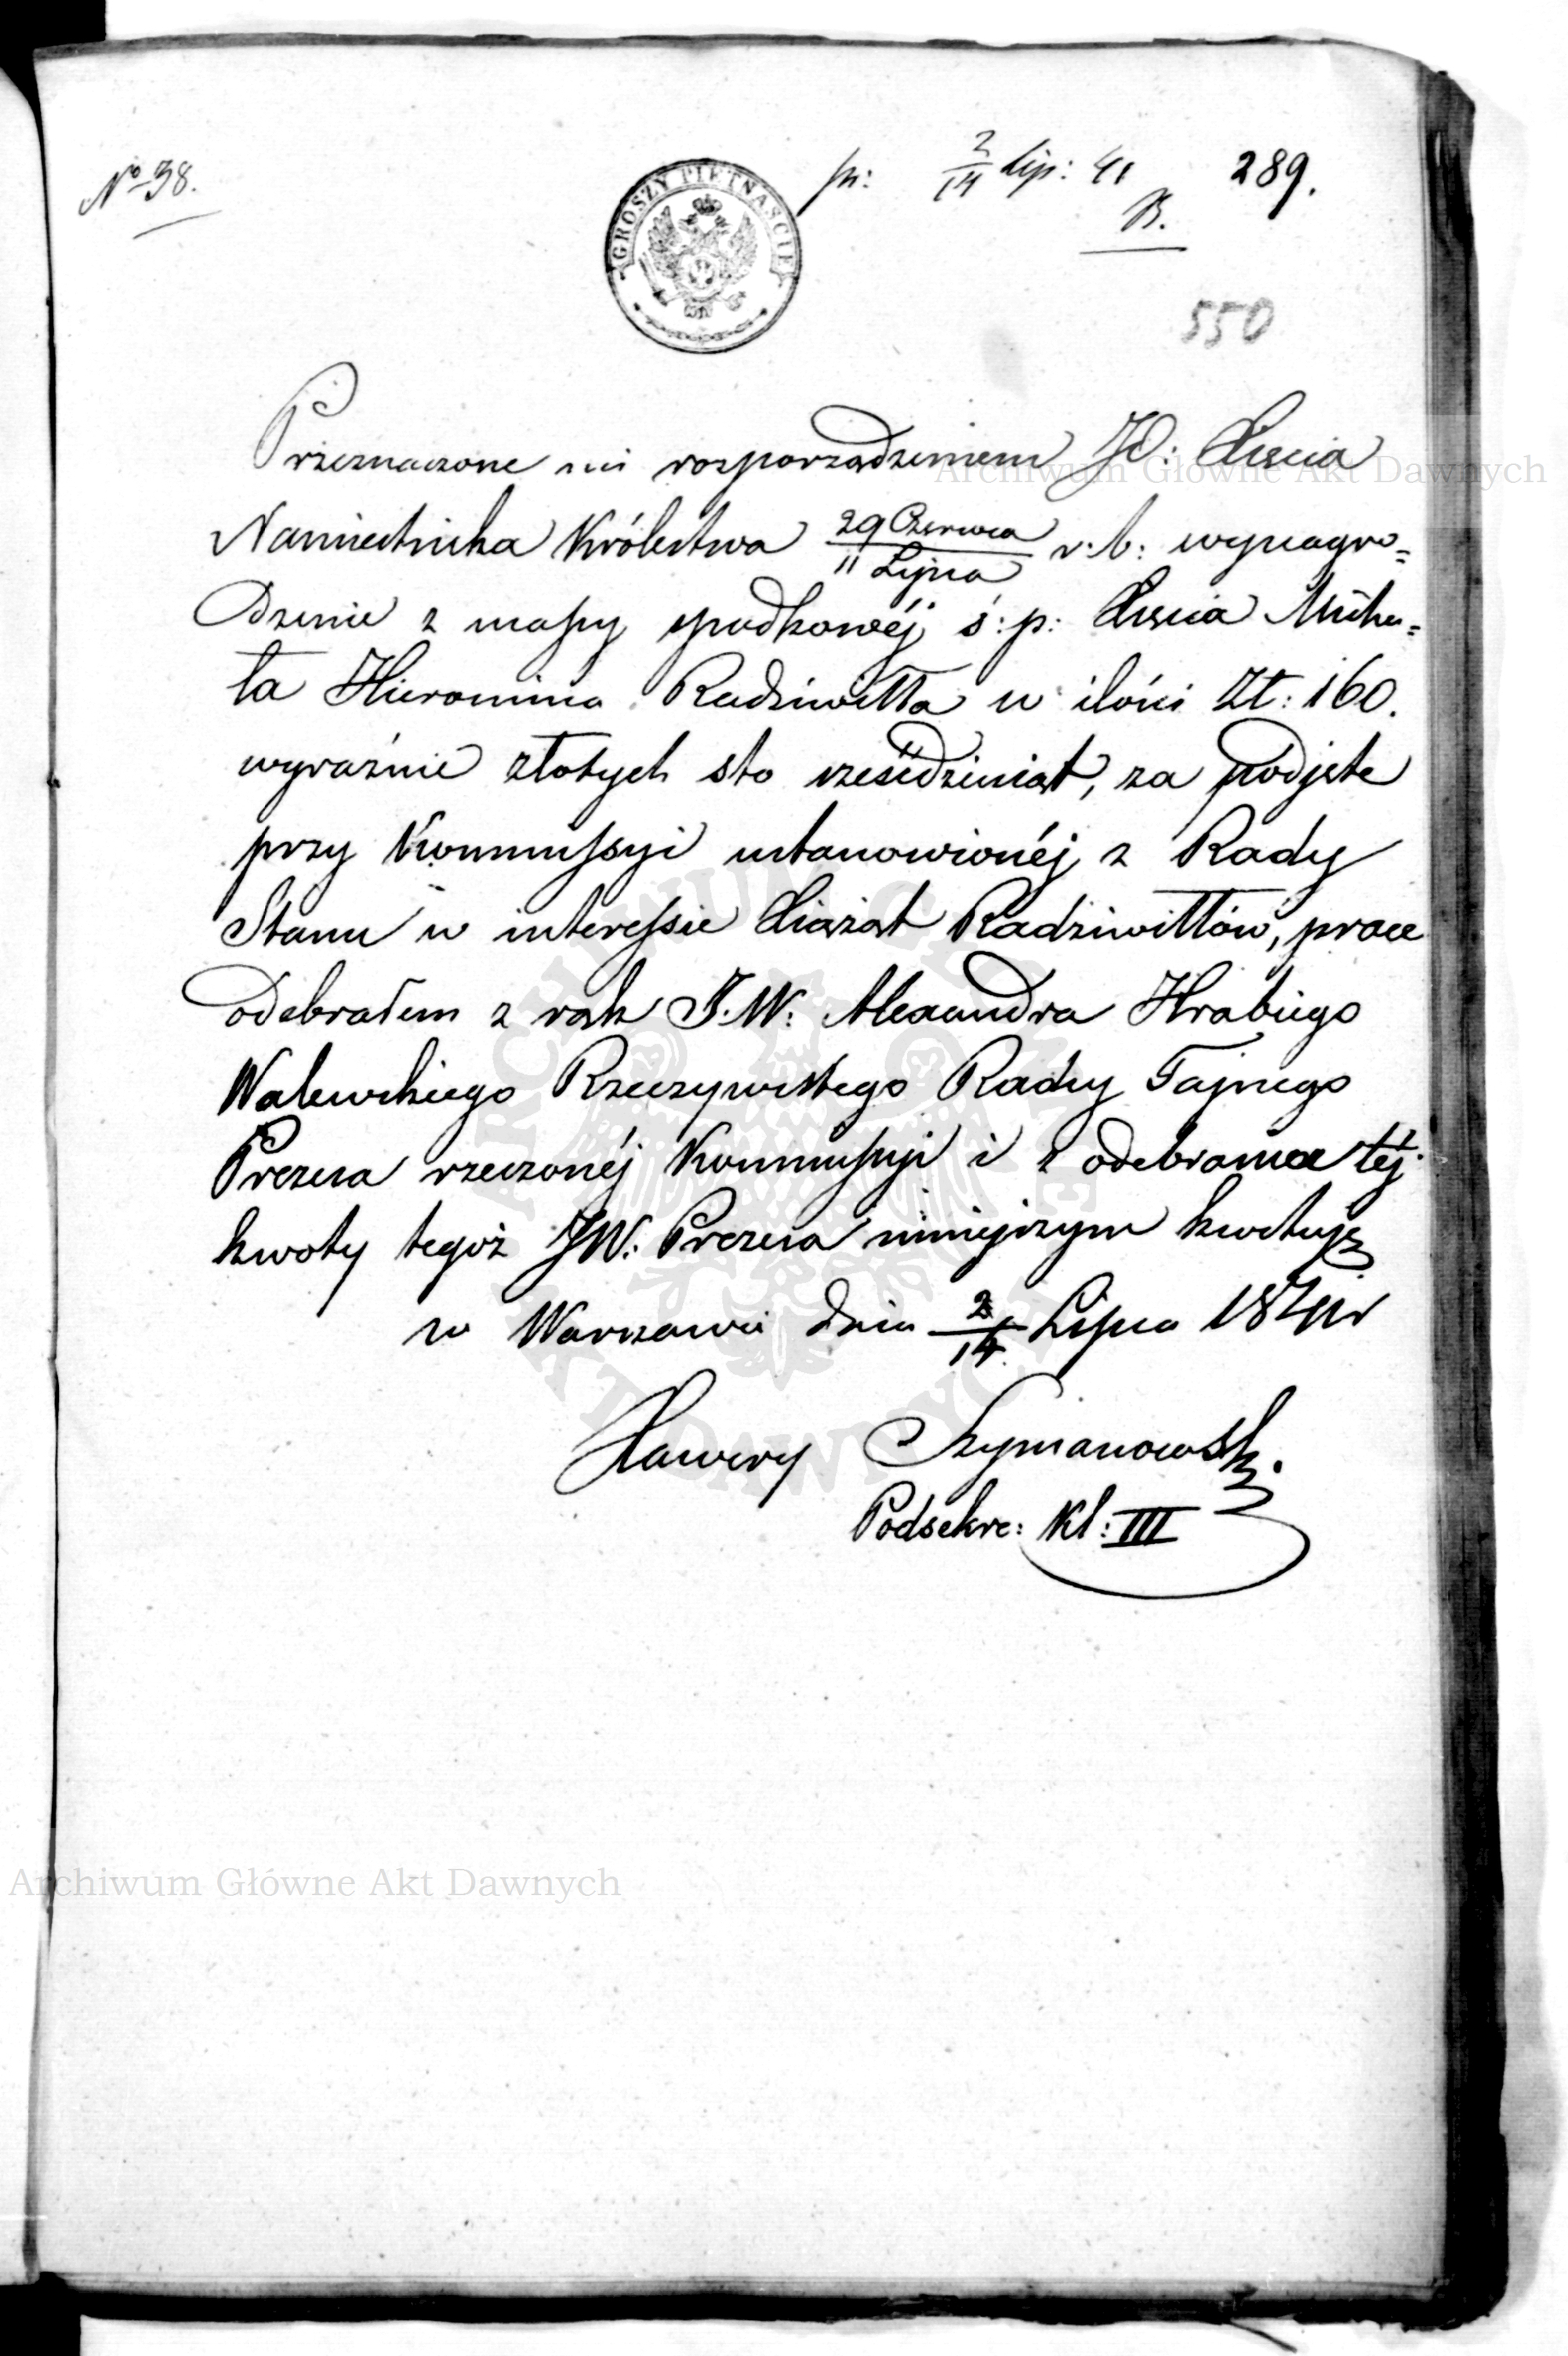 No 38.
GROSZY PIĘTNAŚCIE
pr: 2/14 Lip: 41
289.
B.
550
Przeznaczone mi rozporządzeniem JO: Xięcia
Namiestnika Królestwa 29 Czerwca/11 Lipca r. b: wynagro=
dzenie z massy spadkowéj ś: p: Xięcia Micha=
ła Hieronima Radziwiłła w ilości Zł: 160.
wyraźnie złotych sto sześćdziesiąt, za podjęte
przy Kommissyi ustanowionéj z Rady
Stanu w interessie Xiążąt Radziwiłłów, prace
odebrałem z rąk J.W: Alexandra Hrabiego
Walewskiego Rzeczywistego Radcy Tajnego
Prezesa rzeczonéj Kommissyi i z odebrania téj
kwoty tegoż JW: Prezesa niniejszym kwituję
w Warszawie dnia 2/14 Lipca 1841 r
Xawery Szymanowski.
Podsekre: Kl: III
Archiwum Główne Akt Dawnych
ARCHIWUM GŁÓWNE AKT DAWNYCH
Archiwum Główne Akt Dawnych